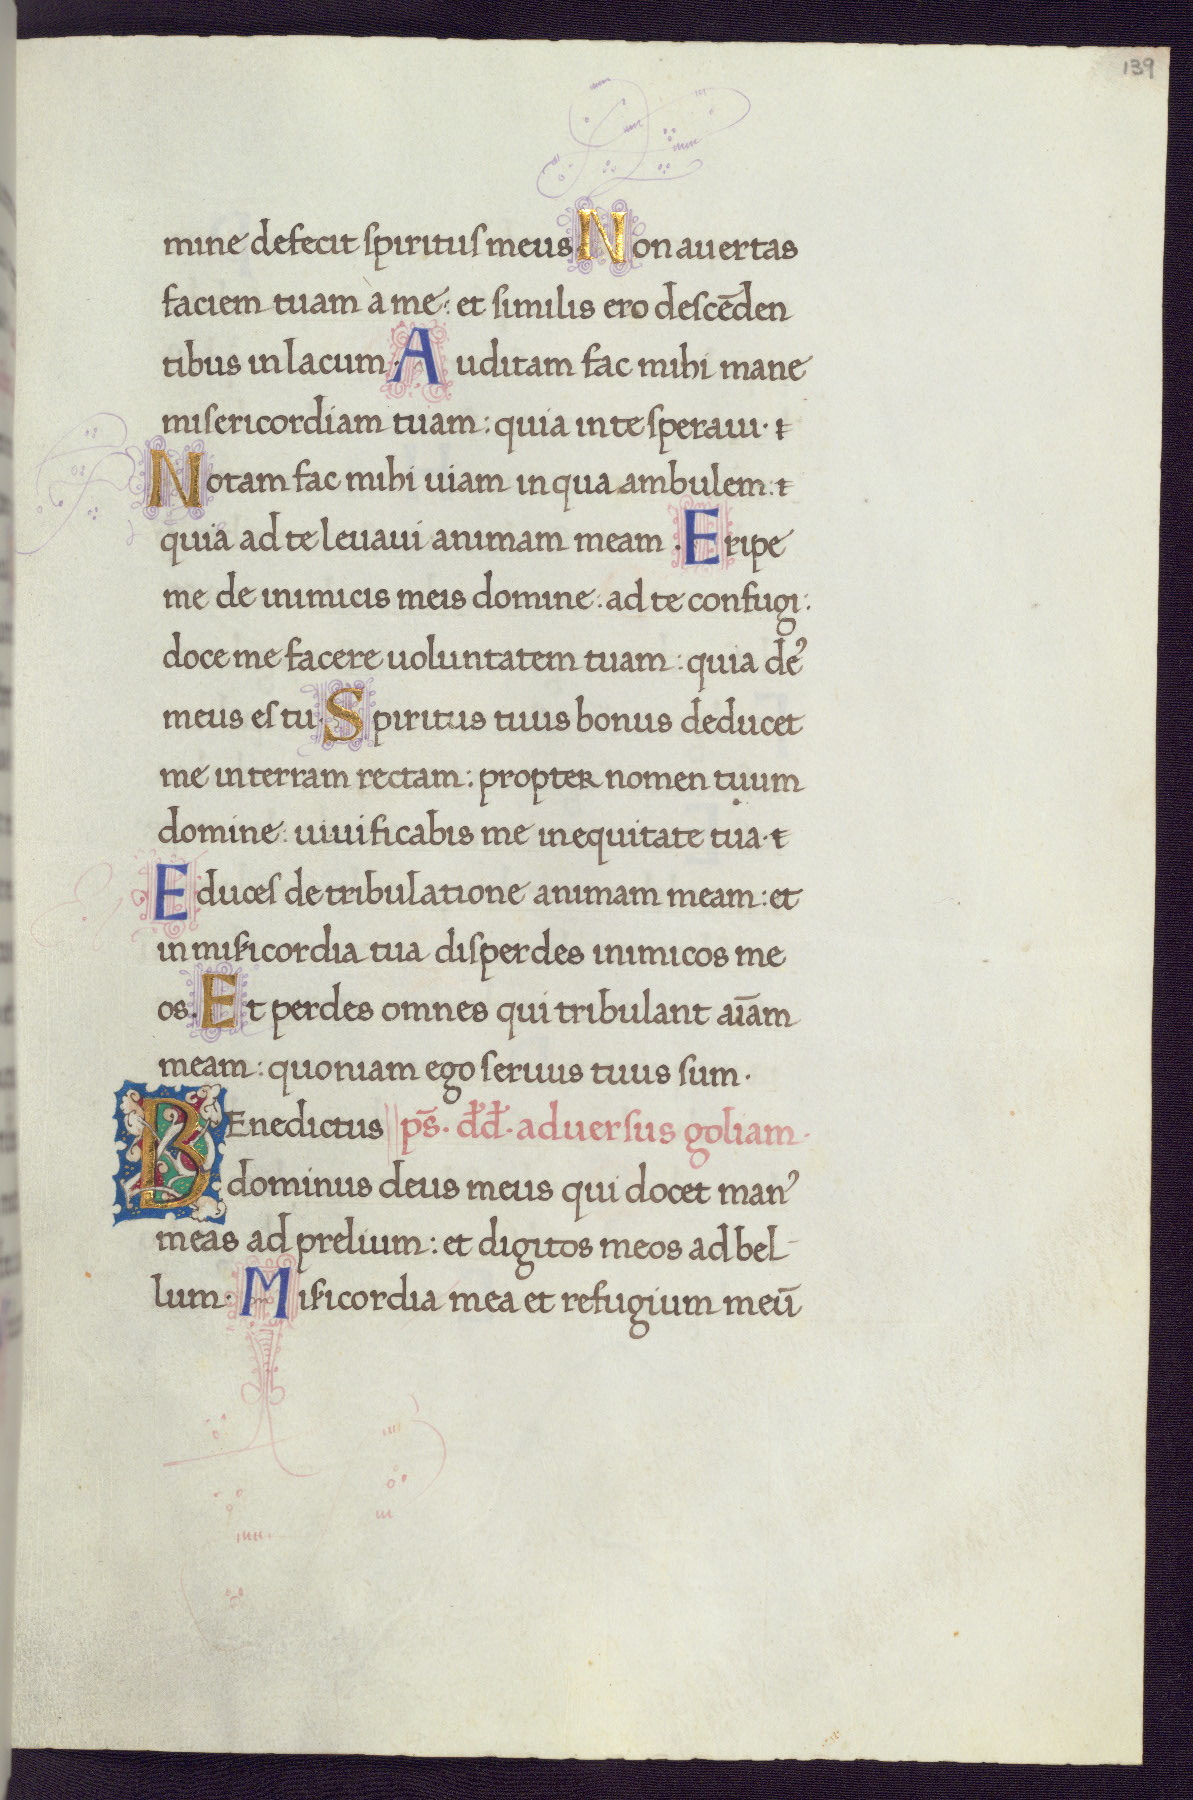 139
mine defecit ſpirituſ meus Non auertas
faciem tuam à me: et ſimilis ero deſcēden
tibus in lacum. Auditam fac mihi mane
miſericordiam tuam: quia in te ſperaui.
Notam fac mihi uiam in qua ambulem:
quia ad te leuaui animam meam. Eripe
me de inimicis meis domine: ad te confugi:
doce me facere uoluntatem tuam: quia de᾿
meus eſ tu. Spiritus tuus bonus deducet
me in terram rectam: propter nomen tuum
domine: uiuificabis me in equitate tua.
Educeſ de tribulatione animam meam: et
in miſicordia tua diſperdes inimicos me
os. Et perdes omnes qui tribulant aīam
meam: quoniam ego ſeruus tuus ſum.
BEnedictus pſ̄. dđ. aduerſus goliam.
dominus deus meus qui docet man᾿
meas ad prelium: et digitos meos ad bel-
lum. Miſicordia mea et refugium meū